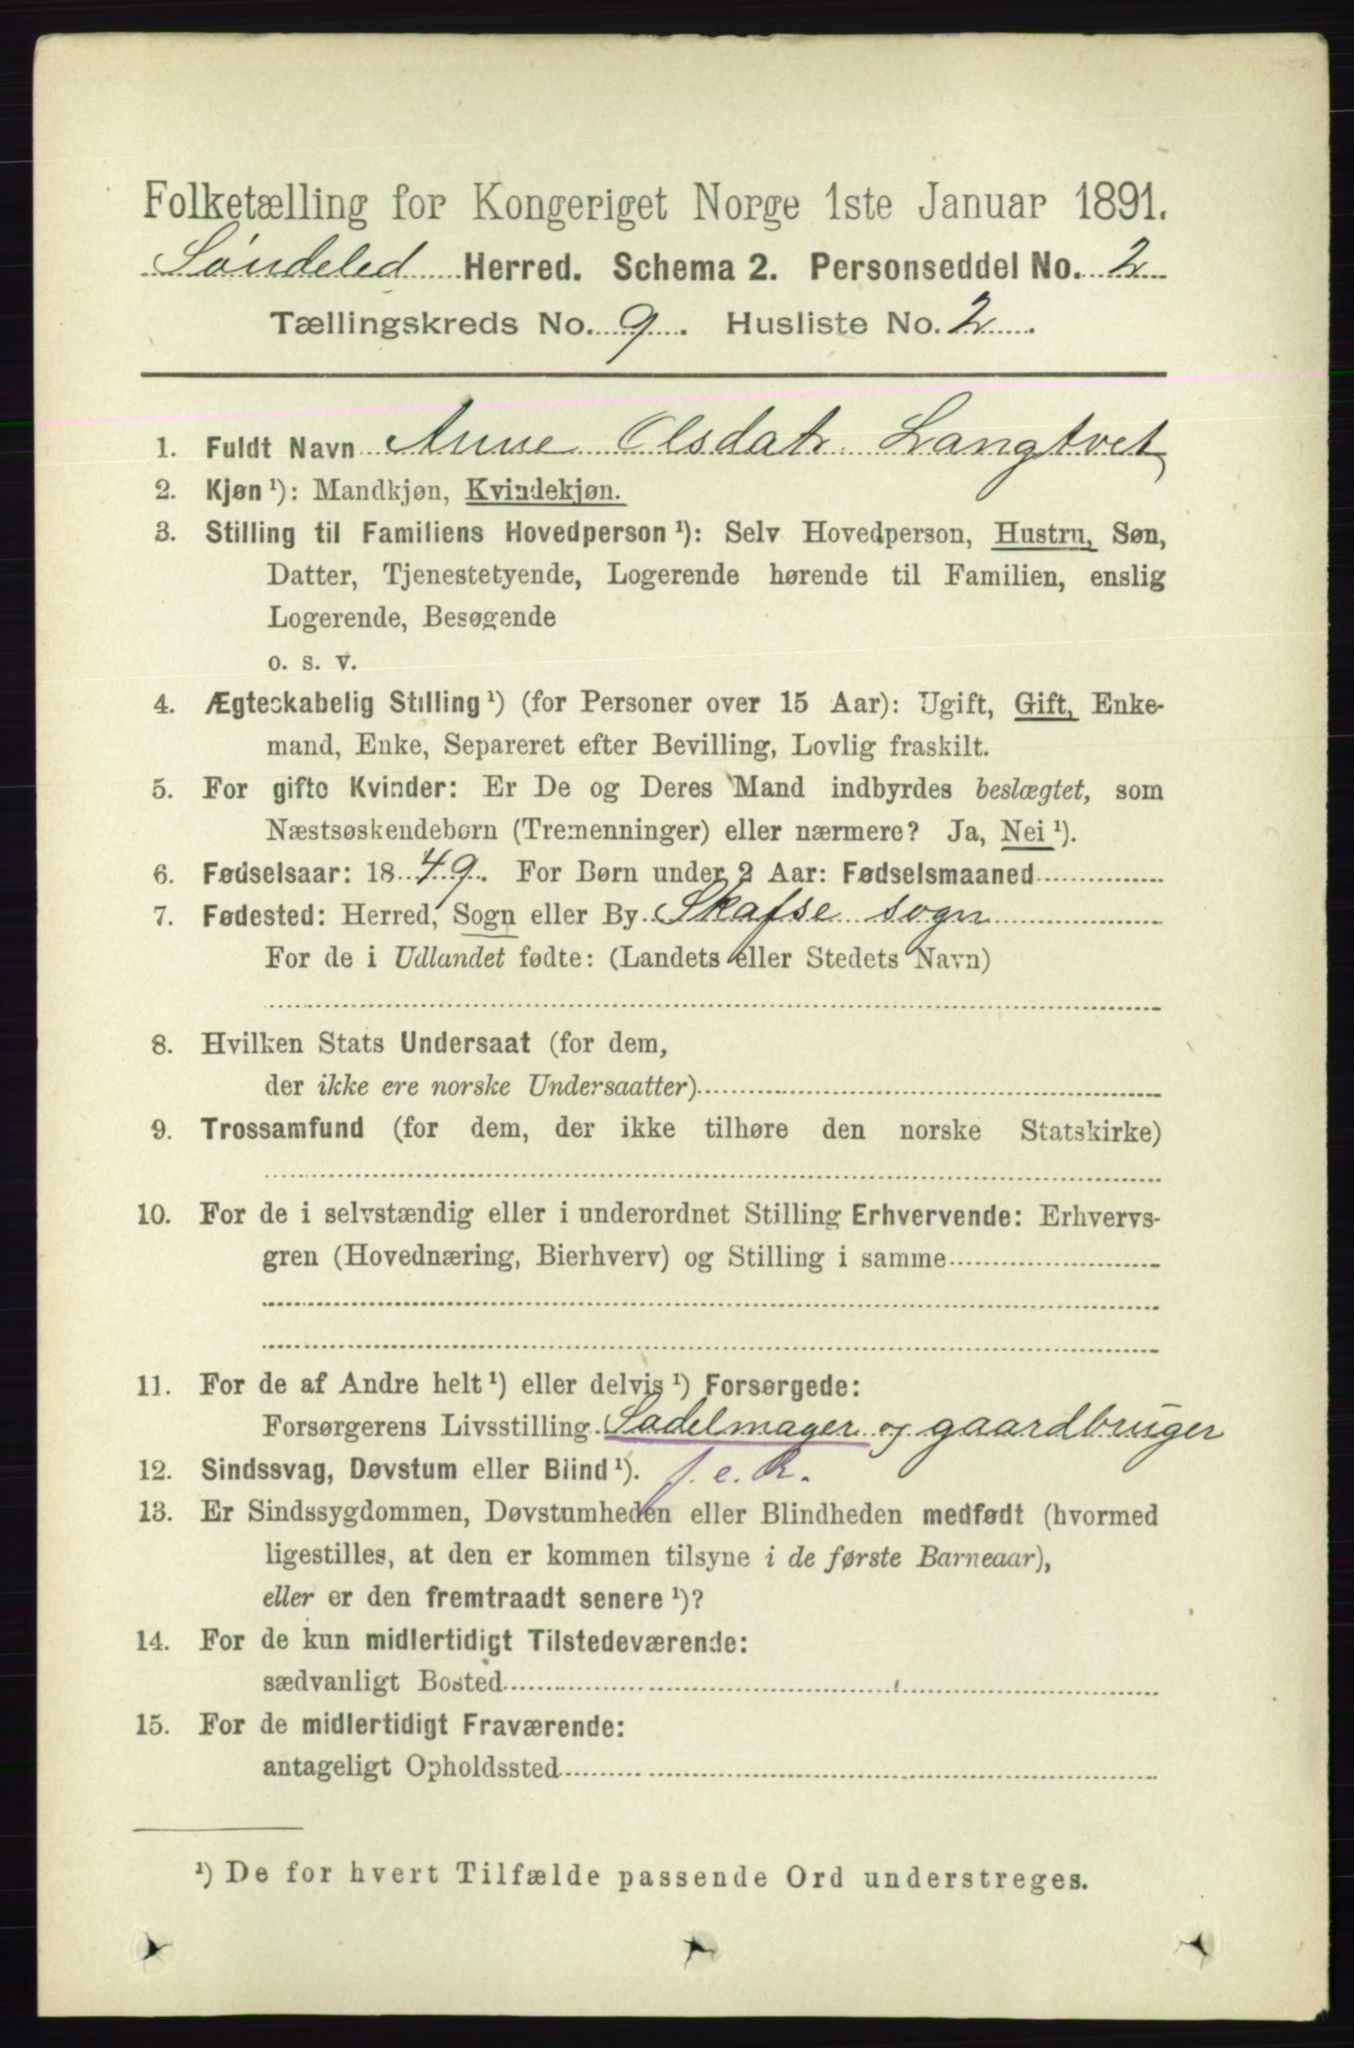 Folketælling for Kongeriget Norge 1ste Januar 1891.
Søndeled Herred. Schema 2. Personseddel No. 2
Tællingskreds No. 9. Husliste No. 2.
1. Fuldt Navn Anne Olsdatr Langtvet
2. Kjøn¹): Mandkjøn, Kvindekjøn.
3. Stilling til Familiens Hovedperson¹): Selv Hovedperson, Hustru, Søn,
Datter, Tjenestetyende, Logerende hørende til Familien, enslig
Logerende, Besøgende
o. s. v.
4. Ægteskabelig Stilling¹) (for Personer over 15 Aar): Ugift, Gift, Enke-
mand, Enke, Separeret efter Bevilling, Lovlig fraskilt.
5. For gifte Kvinder: Er De og Deres Mand indbyrdes beslægtet, som
Næstsøskendebørn (Tremenninger) eller nærmere? Ja, Nei¹).
6. Fødselsaar: 1849. For Børn under 2 Aar: Fødselsmaaned
7. Fødested: Herred, Sogn eller By Skafse sogn
For de i Udlandet fødte: (Landets eller Stedets Navn)
8. Hvilken Stats Undersaat (for dem,
der ikke ere norske Undersaatter)
9. Trossamfund (for dem, der ikke tilhøre den norske Statskirke)
10. For de i selvstændig eller i underordnet Stilling Erhvervende: Erhvervs-
gren (Hovednæring, Bierhverv) og Stilling i samme
11. For de af Andre helt¹) eller delvis¹) Forsørgede:
Forsørgerens Livsstilling Sadelmager og gaardbruger
12. Sindssvag, Døvstum eller Blind¹). f. e. R.
13. Er Sindssygdommen, Døvstumheden eller Blindheden medfødt (hvormed
ligestilles, at den er kommen tilsyne i de første Barneaar),
eller er den fremtraadt senere¹)?
14. For de kun midlertidigt Tilstedeværende:
sædvanligt Bosted
15. For de midlertidigt Fraværende:
antageligt Opholdssted
¹) De for hvert Tilfælde passende Ord understreges.